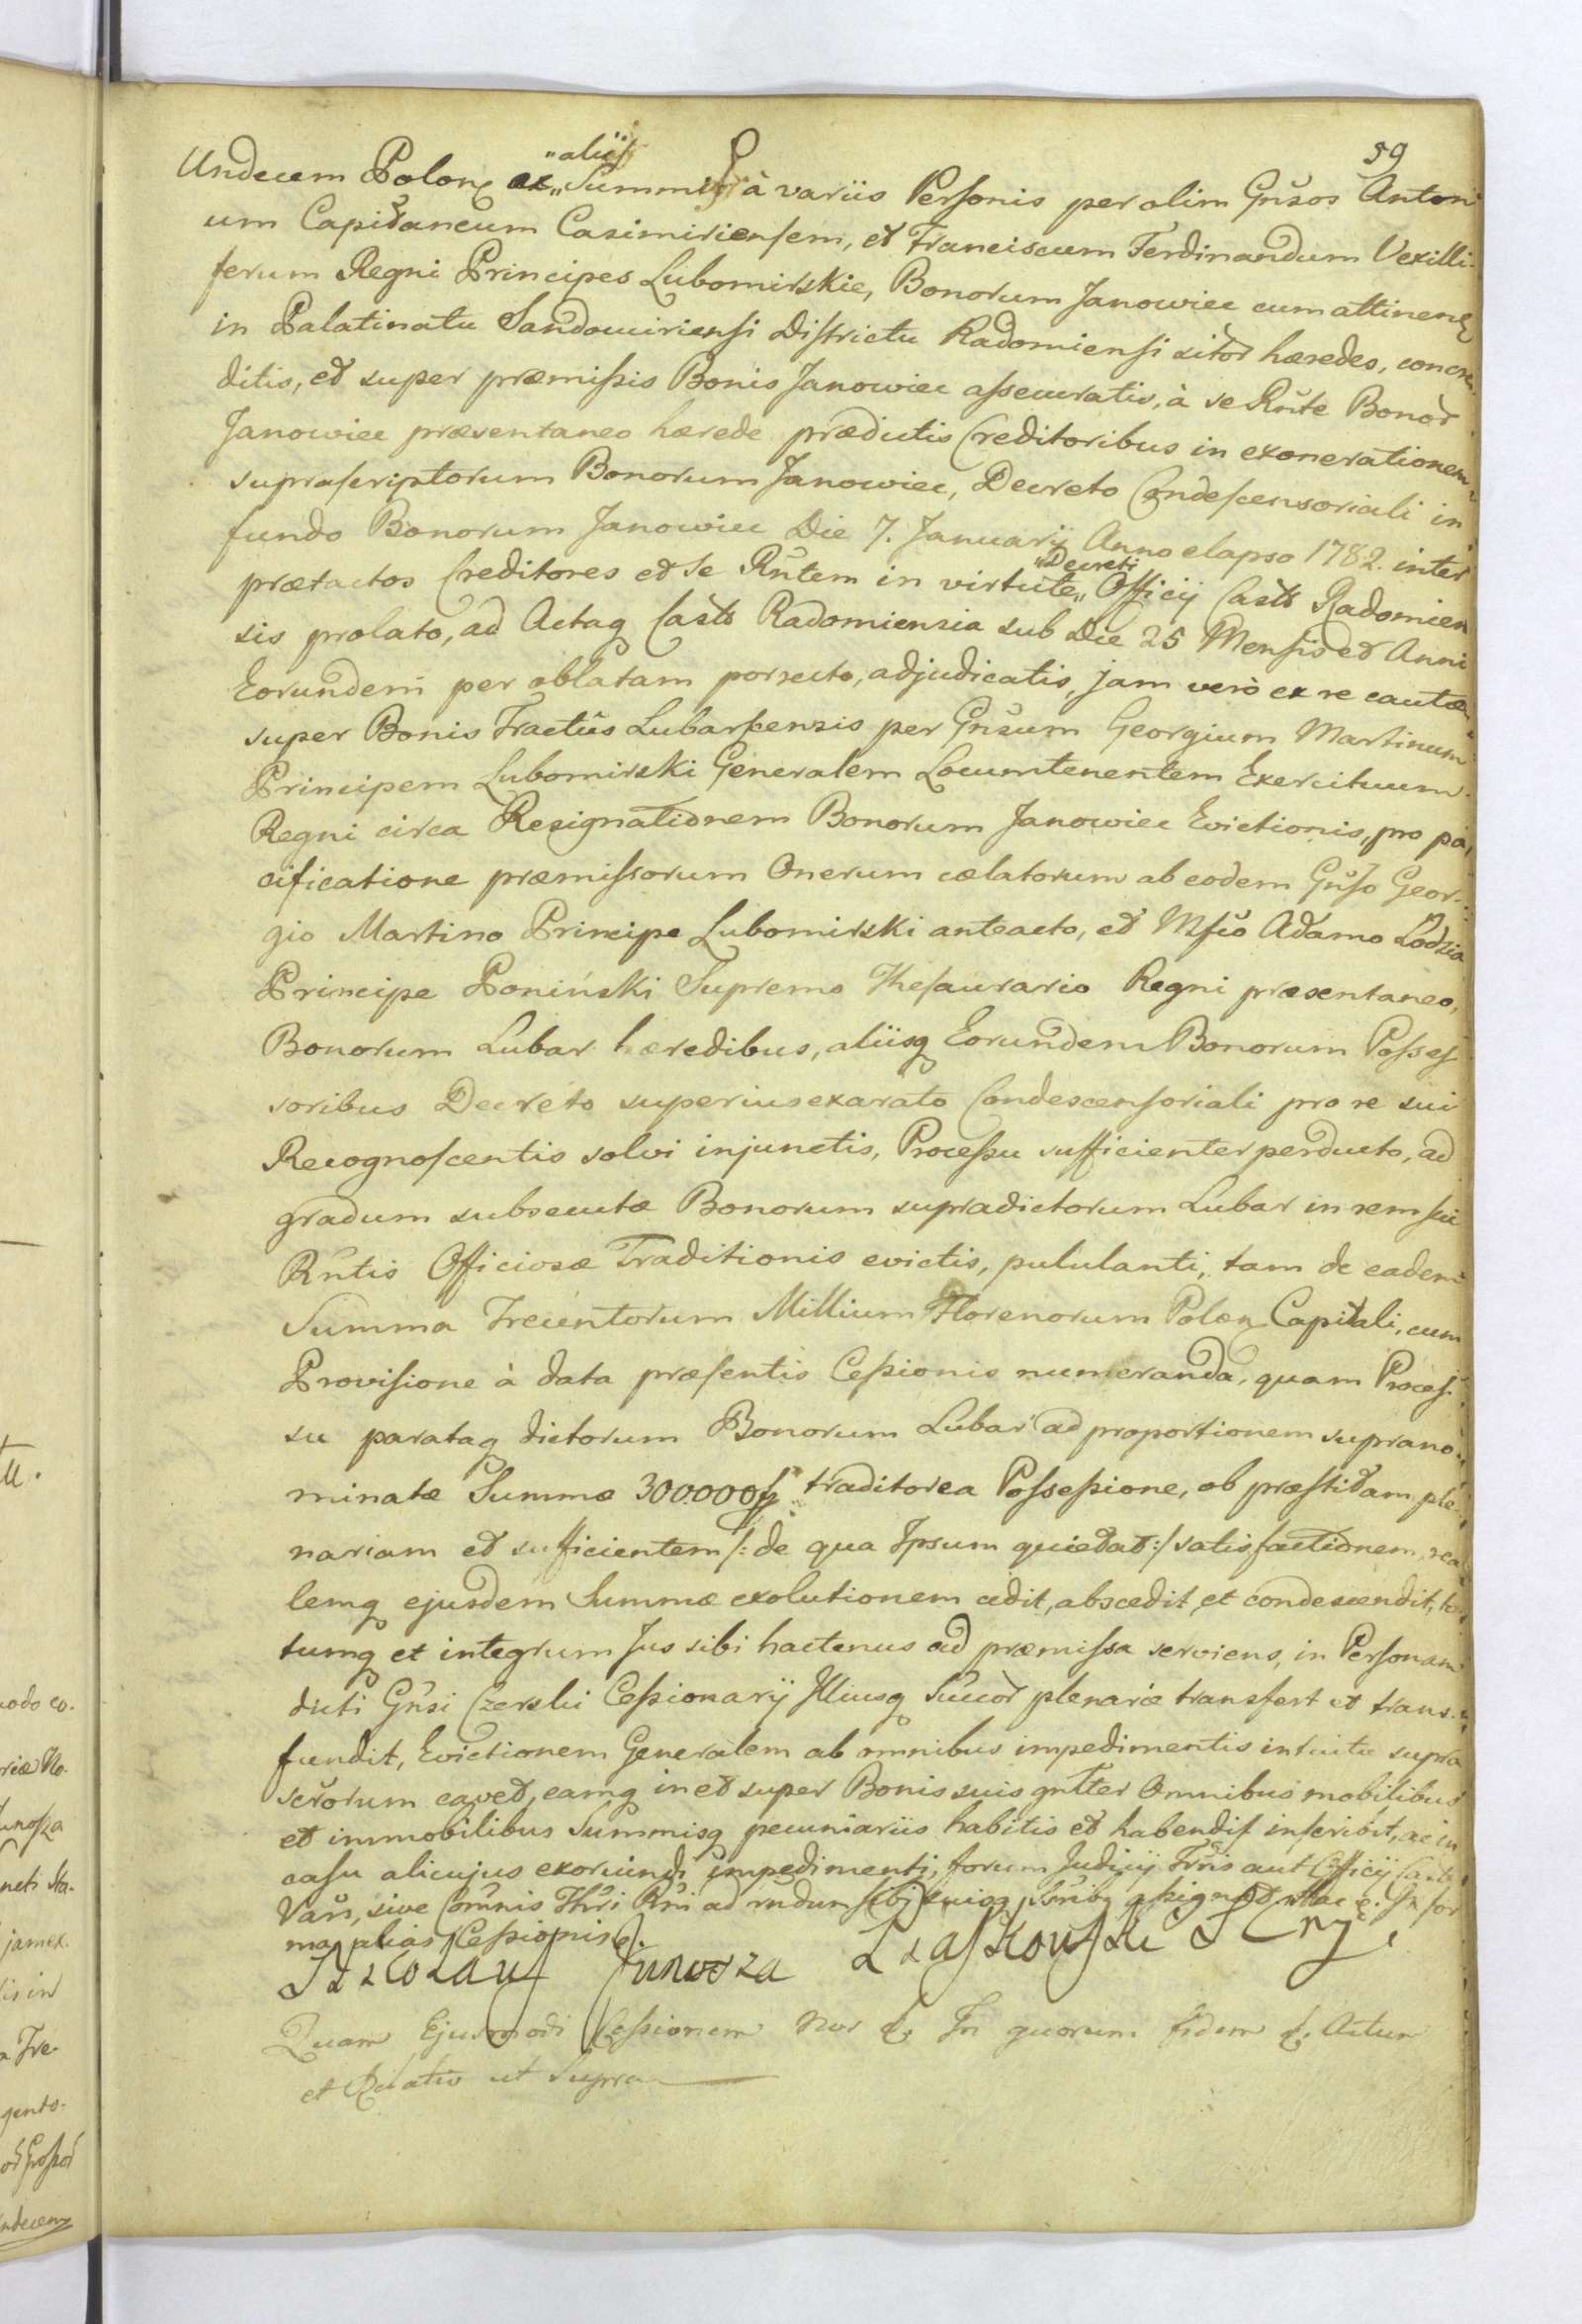 59
Undecem Polon ex „aliis „Summis à variis Personis per olim Gñsos Antoni
um Capitaneum Casimiriensem, et Franciscum Ferdinandum Vexilli-
ferum Regni Principes Lubomirskie, Bonorum Janowiec cum attinen
in Palatinatu Sandomiriensi Districtu Radomiensi sitor hæredes, concre-
ditis, et super præmissis Bonis Janowiec assecuratis, à se Rñte Bonor
Janowiec præsentaneo hærede prædictis Creditoribus in exonerationem
suprascriptorum Bonorum Janowiec, Decreto Condescensoriali in
fundo Bonorum Janowiec Die 7. Januarÿ Anno elapso 1782. inter
prætactos Creditores et Se Rñtem in virtute „Decreti „ Officÿ Casts Radomien
sis prolato, ad Actaq Casts Radomiensia sub Die 25 Mensis et Anni
Eorundem per oblatam porrecto, adjudicatis, jam verò ex re cautæ
super Bonis Tractûs Lubarscensis per Gñsum Georgium Martinum
Principem Lubomirski Generalem Locumtenentem Exercituum
Regni circa Resignationem Bonorum Janowiec Evictionis, pro pa
cificatione præmissorum Onerum cælatorum ab eodem Gñso Geor-
gio Martino Principe Lubomirski anteacto, et Mfco Adamo Lodzia
Principe Poniński Supremo Thesaurario Regni præsentaneo,
Bonorum Lubar hæredibus, aliisq Eorundem Bonorum Posses
soribus Decreto superius exarato Condescensoriali pro re sui
Recognoscentis solvi injunctis, Processu sufficienter perducto, ad
gradum subsecutæ Bonorum supradictorum Lubar in rem sui
Rñtis Officiosæ Traditionis evictis, pululanti, tam de eadem
Summa Trecentorum Millium Florenorum Polon Capitali, cum
Provisione à data præsentis Cessionis numeranda, quam Proces-
su parataq dictorum Bonorum Lubar ad proportionem suprano-
minatæ Summæ 300.000 fp traditorea Possessione, ob præstitam ple
nariam et sufficientem /: de qua Ipsum quietat :/ satisfactionem, rea
lemq ejusdem Summæ exolutionem cedit, abscedit et condescendit, to
tumq et integrum Jus sibi hactenus ad præmissa serviens, in Personam
dicti Gñsi Czerski Cessionarÿ Illiusq Succor plenariæ transfert et trans-
fundit, Evictionem Generalem ab omnibus impedimentis intuitu supra
scrorum cavet, eamq in et super Bonis suis gntter Omnibus mobilibus
et immobilibus Summisq pecuniariis habitis et habendis inscribit, ac in
casu alicujus exoriundi impedimenti, forum Judicÿ Trñs aut Officÿ Casts
Varš, sive Comñis Thñri Rñi ad rndum sibi suisq assignat. In for
ma alias Cessionis
Junosza
Quam Ejusmodi Cessionem Nos &. In quorum fidem &. Actum
et Relatio ut Supra